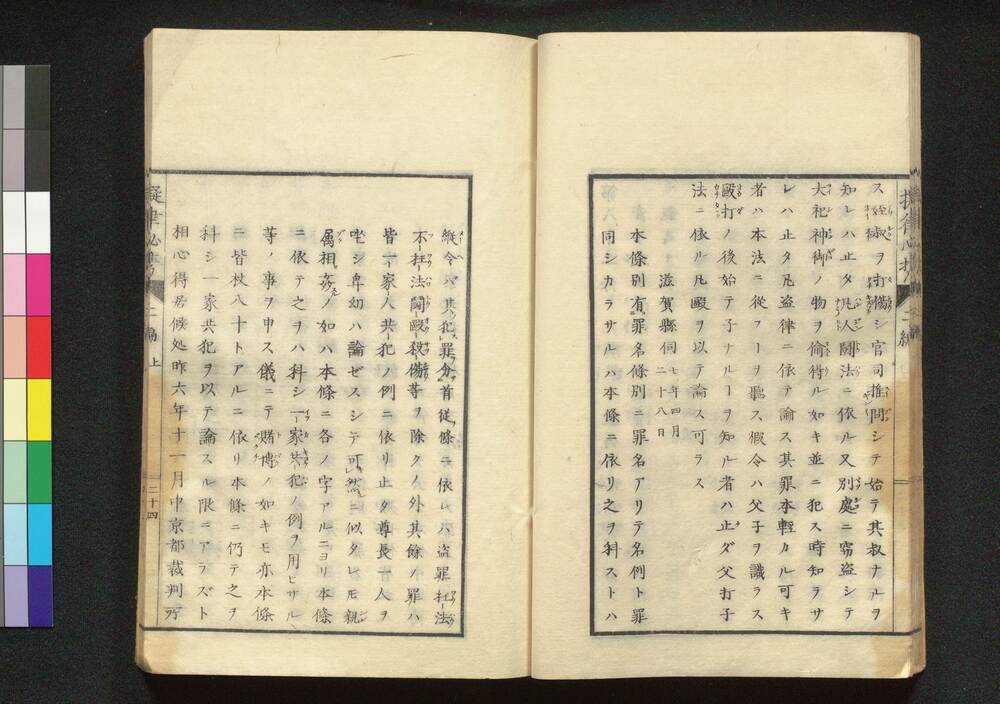 ス姪叔ヲ打傷シ官司推問シテ始テ其叔ナルヲ
知レハ止タ凡人鬪法ニ依ル又別處ニ窃盜シテ
大祀神御ノ物ヲ偷得ル如キ並ニ犯ス時知ラサ
レハ止タ凡盜律ニ依テ論ス其罪本輕カル可キ
者ハ本法ニ從フヿヲ聽ス假令ハ父子ヲ識ラス
毆打ノ後始テ子ナルヿヲ知ル者ハ止ダ父打子
法ニ依ル凡毆ヲ以テ論ス可ラス
滋賀縣伺 七年四月二十八日
本條別有罪名條別ニ罪名アリテ名例ト罪
同シカラサルハ本條ニ依リ之ヲ科ストハ
縱令ハ其犯罪分首從條ニ依レハ盜罪枉法
不枉法鬪毆殺傷等ヲ除クノ外其餘ノ罪ハ
皆一家人共犯ノ例ニ依リ止タ尊長一人ヲ
坐シ卑幼ハ論ゼスシテ可然ニ似タレ𪜈親
属相姦ノ如ハ本條ニ各ノ字アルニヨリ本條
ニ依テ之ヲハ科シ一家共犯ノ例ヲ用ヒサル
等ノ事ヲ申ス儀ニテ賭博ノ如キモ亦本條
ニ皆杖八十トアルニ依リ本條ニ仍テ之ヲ
科シ一家共犯ヲ以テ論スル限ニアラズト
相心得居候処昨六年十一月中京都裁判所
二編 上
二十四